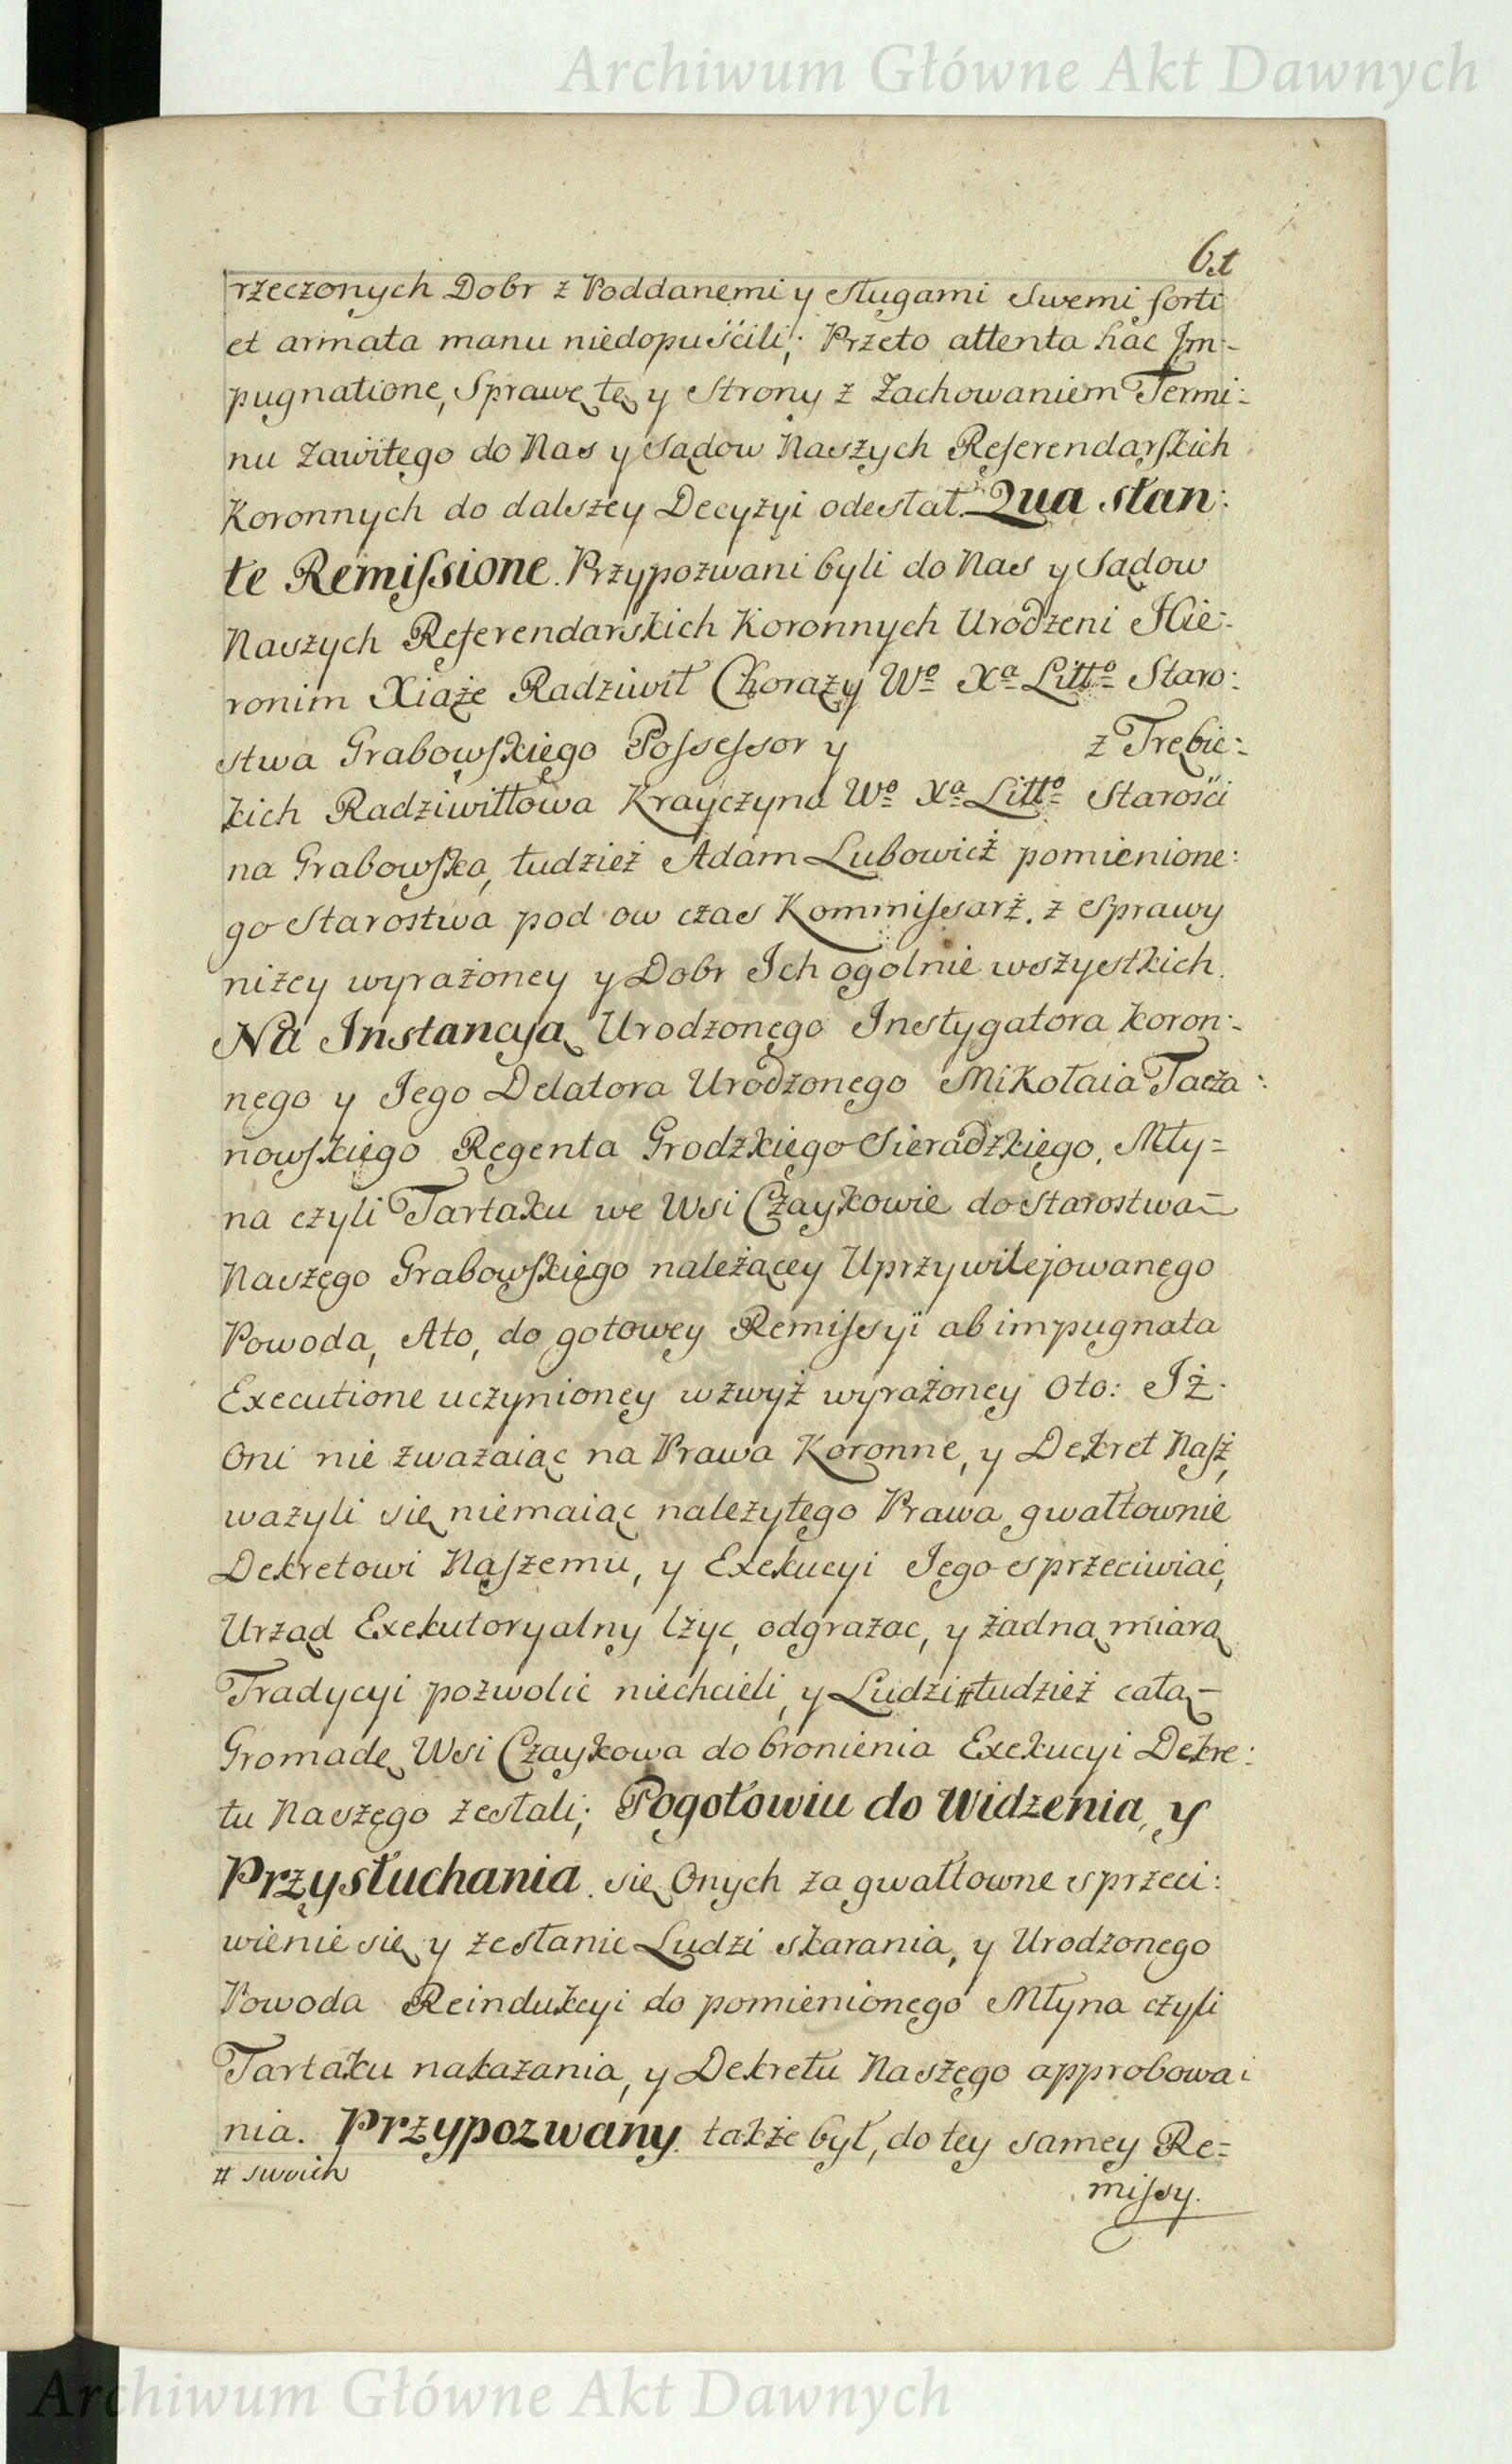 Archiwum Główne Akt Dawnych
61
rzeczonych Dobr z Poddanemi y sługami swemi forti
et armata manu niedopuścili; Przeto attenta hac Im-
pugnatione, Sprawę tę y Strony z Zachowaniem Termi:
nu Zawitego do Nas y Sądow Naszych Referendarskich
Koronnych do dalszey Decyzyi odesłał. Qua stan:
te Remissione. Przypozwani byli do Nas y Sądow
Naszych Referendarskich Koronnych Urodzeni Hie-
ronim Xiąże Radziwił Chorąży Wo Xa Litto Staro:
stwa Grabowskiego Possessor y z Trębic:
kich Radziwiłłowa Krayczyna Wo Xa Litto Starości
na Grabowska, tudzież Adam Lubowicż pomienione:
go Starostwa pod ow czas Kommissarż. z Sprawy
niżey wyrażoney y Dobr Ich ogolnie wszystkich.
Na Instancyą Urodzonego Instygatora koron:
nego y Jego Delatora Urodzonego Mikołaia Tacza:
nowskiego Regenta Grodzkiego Sieradzkiego, Mły=
na czyli Tartaku we Wsi Czaykowie do Starostwa
Naszego Grabowskiego należącey Uprzywilejowanego
Powoda, Ato, do gotowey Remissyi ab impugnata
Executione uczynioney wzwyż wyrażoney oto: Iż
Oni nie zważaiąc na Prawa Koronne, y Dekret Nasz,
ważyli się niemaiąc należytego Prawa gwałtownie
Dekretowi Naszemu, y Exekucyi Jego sprzeciwiać,
Urząd Exekutoryalny lżyć, odgrażac, y żadną miarą
Tradycyi pozwolić niechcieli, y Ludzi # tudzież całą
Gromadę Wsi Czaykowa do bronienia Exekucyi Dekre:
tu Naszego zesłali; Pogotowiu do Widzenia, y
Przysłuchania się Onych za gwałtowne sprzeci:
wienie się y zesłanie Ludzi skarania, y Urodzonego
Powoda Reindukcyi do pomienionego Młyna czyli
Tartaku nakazania, y Dekretu Naszego approbowa:
nia. Przypozwany także był, do tey samey Re=
# swoich
missy.
Archiwum Główne Akt Dawnych